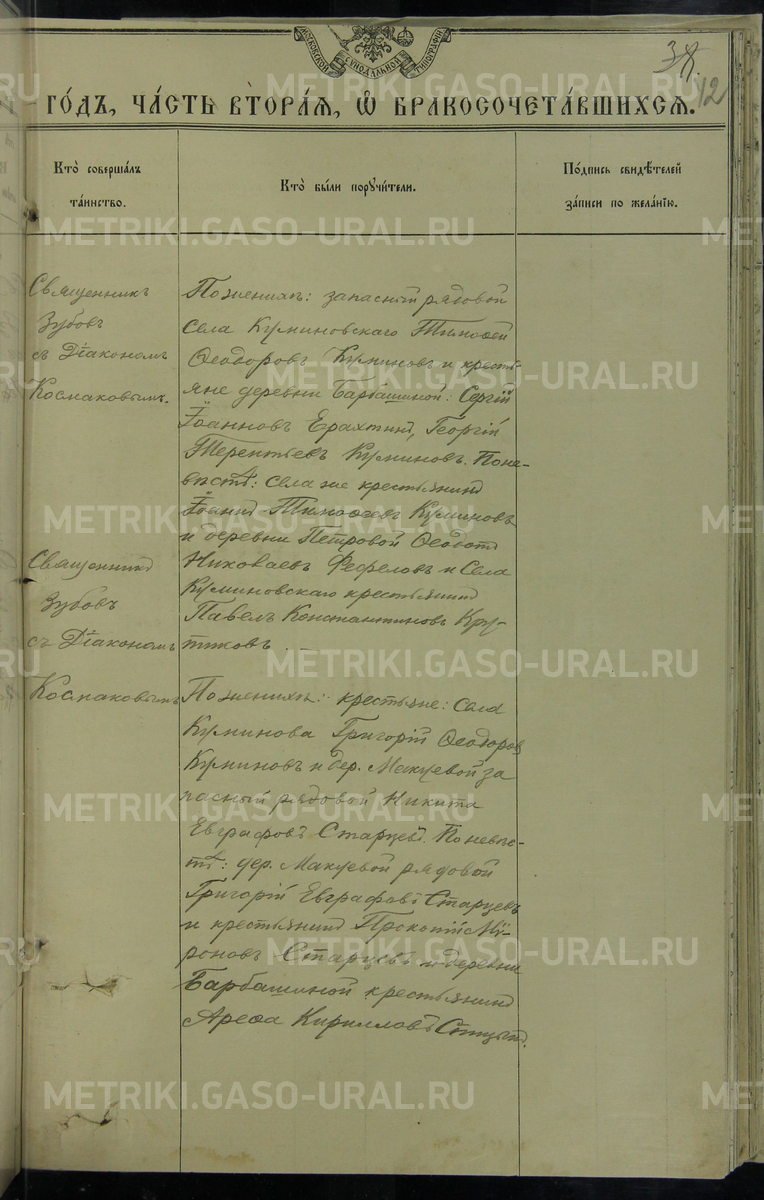 МОСКОВСКОЙ СѴНОДАЛЬНОЙ ТИПОГРАФІИ
38.
42
ГО́ДЪ, ЧА́СТЬ ВТОРА́Я, Ѽ БРАКОСОЧЕТА́ВШИХСЯ.
Кто̀ соверша́лъ
та́инство.
Кто̀ бы́ли порꙋчи́тели.
По́дпись свидѣ́телей
за́писи по жела́нїю.
Священникъ
Зубовъ
съ Діакономъ
Космаковымъ.
По женихѣ: запасный рядовой
Села Куминовскаго Тимофей
Ѳеодоровъ Куминовъ и кресть-
яне деревни Барбашиной: Сергій
Іоанновъ Ерахтинъ, Георгій
Терентьевъ Куминовъ. По не-
вѣстѣ: Села же крестьянинъ
Іоаннъ Тимофеевъ Куминовъ
и деревни Петровой Ѳедотъ
Николаевъ Фефеловъ и Села
Куминовскаго крестьянинъ
Павелъ Константиновъ Кру-
тиковъ.
Священникъ
Зубовъ
съ Діакономъ
Космаковымъ
По женихѣ: крестьяне: Села
Куминова Григорій Ѳеодоровъ
Куминовъ и дер. Макуевой за
пасный рядовой Никита
Евграфовъ Старцевъ. По невѣс-
тѣ: дер. Макуевой рядовой
Григорій Евграфовъ Старцевъ
и крестьянинъ Прокопій Мѵ-
роновъ Старцевъ и деревни
Барбашиной крестьянинъ
Ареѳа Кирилловъ
METRIKI.GASO-URAL.RU